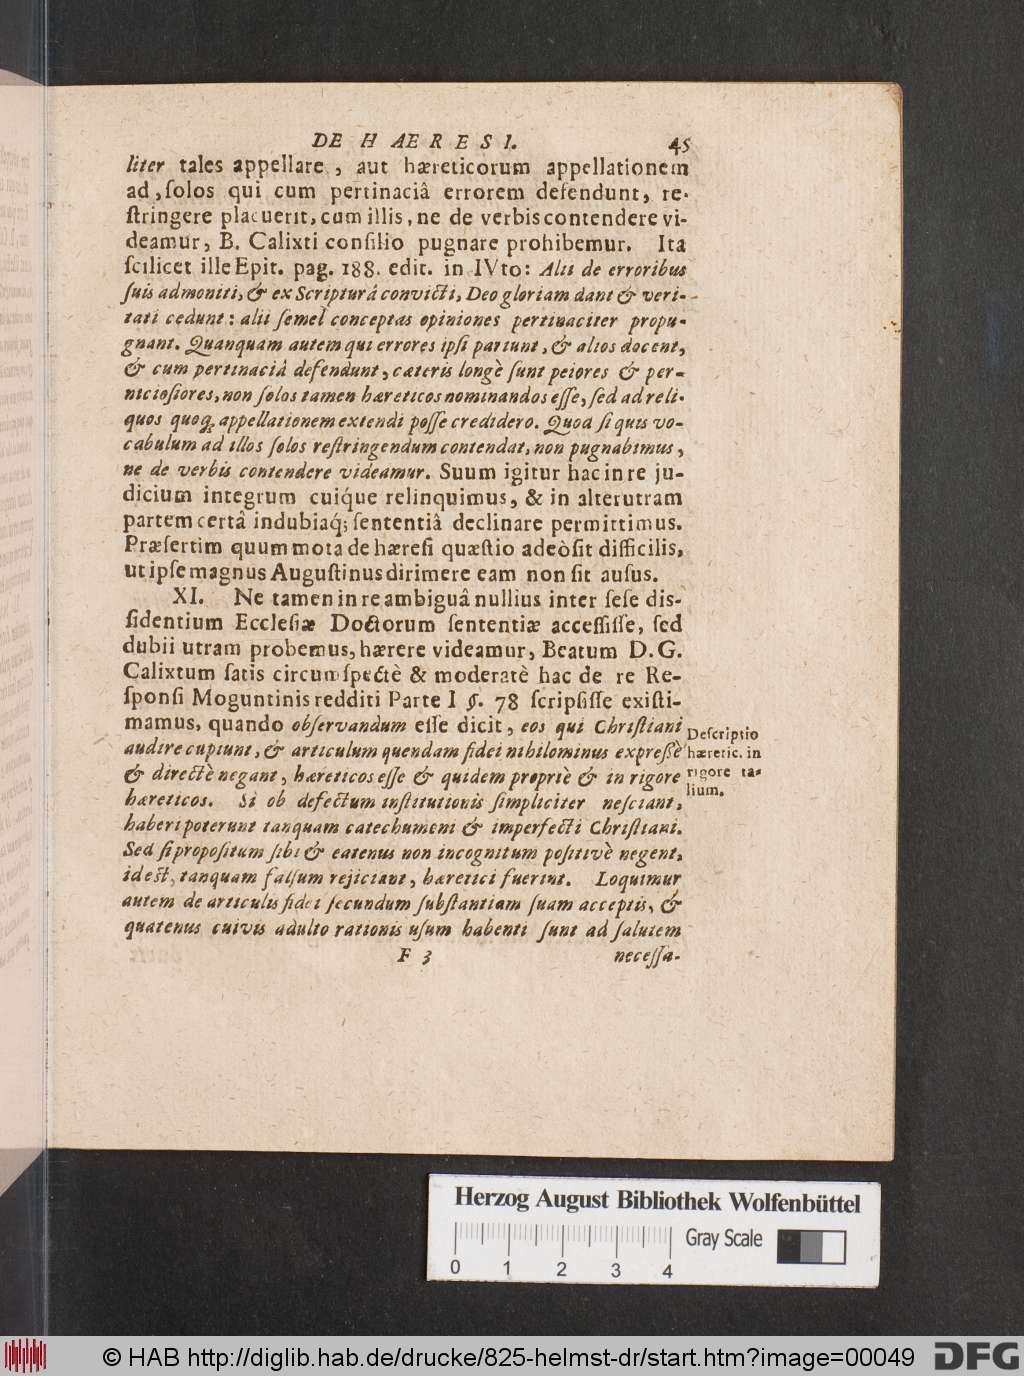 DE HÆRESI. 45
liter tales appellare, aut hæreticorum appellationem
ad, ſolos qui cum pertinaciâ errorem defendunt, re-
ſtringere placuerit, cum illis, ne de verbis contendere vi-
deamur, B. Calixti conſilio pugnare prohibemur. Ita
ſcilicet ille Epit. pag. 188. edit. in IVto: Alii de erroribus
ſuis admoniti, & ex Scripturâ convicti, Deo gloriam dant & veri-
tati cedunt: alii ſemel conceptas opiniones pertinaciter propu-
gnant. Quanquam autem qui errores ipſi pariunt, & alios docent,
& cum pertinaciâ defendunt, cæteris longè ſunt peiores & per-
nicioſiores, non ſolos tamen hæreticos nominandos eſſe, ſed ad reli-
quos quoq; appellationem extendi poſſe credidero. Quod ſi quis vo-
cabulum ad illos ſolos reſtringendum contendat, non pugnabimus,
ne de verbis contendere videamur. Suum igitur hac in re ju-
dicium integrum cuiq́ue relinquimus, & in alterutram
partem certâ indubiaq́; ſententiâ declinare permittimus.
Præſertim quum mota de hæreſi quæſtio adeò ſit difficilis,
ut ipſe magnus Auguſtinus dirimere eam non ſit auſus.
XI. Ne tamen in re ambiguâ nullius inter ſeſe dis-
ſidentium Eccleſiæ Doctorum ſententiæ acceſſiſſe, ſed
dubii utram probemus, hærere videamur, Beatum D. G.
Calixtum ſatis circumſpectè & moderatè hac de re Re-
ſponſi Moguntinis redditi Parte I §. 78 ſcripſiſſe exiſti-
mamus, quando obſervandum eſſe dicit, eos qui Chriſtiani
audire cupiunt, & articulum quendam fidei nihilominus expreßè
& directè negant, hæreticos eſſe & quidem propriè & in rigore
hæreticos. Si ob defectum inſtitutionis ſimpliciter neſciant,
haberi poterunt tanquam catechumeni & imperfecti Chriſtiani.
Sed ſi propoſitum ſibi & eatenus non incognitum poſitivè negent,
id eſt, tanquam falſum rejiciant, hæretici fuerint. Loquimur
autem de articulis fidei ſecundum ſubſtantiam ſuam acceptis, &
quatenus cuivis adulto rationis uſum habenti ſunt ad ſalutem
F 3 neceſſa-
Deſcriptio
hæretic. in
rigore ta-
lium.
Herzog August Bibliothek Wolfenbüttel
0 1 2 3 4
Gray Scale
© HAB http://diglib.hab.de/drucke/825-helmst-dr/start.htm?image=00049
DFG